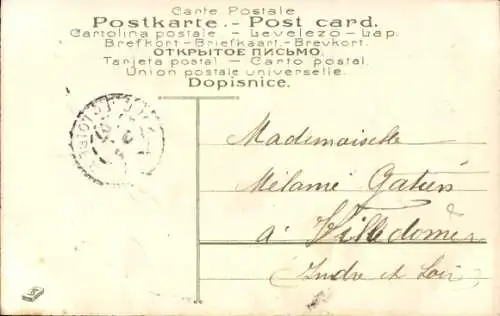 Carte Postale
Postkarte.- Post card.
Cartolina postale. - Levelezö - Lap.
Brefkort - Briefkaart - Brevkort.
ОТКРЫТОЕ ПИСЬМО.
Tarjeta postal - Carto postal.
Union postale universelle.
Dopisnice.
Mademoiselle
Mélanie Gatien
à Villedômer
(Indre et Loire)